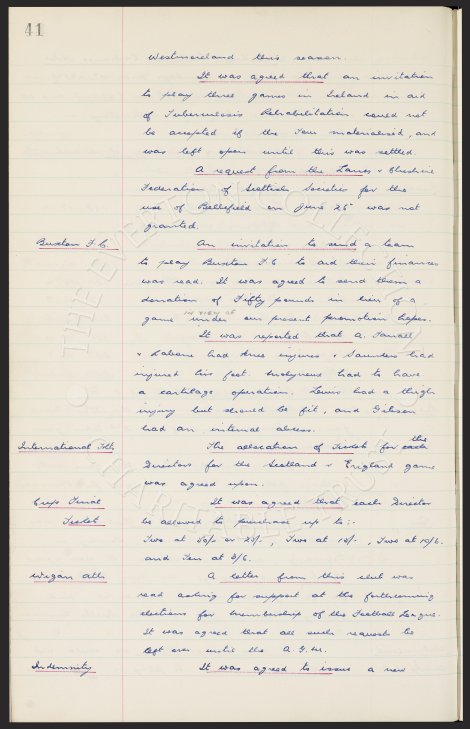 41
Westmoreland this season.
It was agreed that an invitation
to play three games in Ireland in aid
of Tuberculosis Rehabilitation could not
be accepted if the Tour materialised, and
was left open until this was settled.
A request from the Lancs & Cheshire
Federation of Scottish Societies for the
use of Bellefield on June 25 was not
granted.
Buxton F.C. An invitation to send a team
to play Buxton F.C to aid their finances
was read. It was agreed to send them a
donation of Fifty pounds in lieu of a
IN VIEW OF
game under our present promotion hopes.
It was reported that A. Farrell
& Labone had knee injuries & Saunders had
injured his foot. Molyneux had to have
a cartilage operation. Lewis had a thigh
injury but should be fit, and Gibson
had an internal abcess.
International Tkts The allocation of Tickets for each the
Directors for the Scotland v England game
was agreed upon.
Cup Final It was agreed that each Director
Tickets be allowed to purchase up to:-
Two at 50/- or 25/-, Two at 15/-, Two at 10/6
and Ten at 3/6.
Wigan Ath A letter from this club was
read asking for support at the forthcoming
elections for membership of the Football League.
It was agreed that all such requests be
left over until the A.G.M.
Indemnity It was agreed to issue a new
THE EVERTON COLLECTION
CHARITABLE TRUST